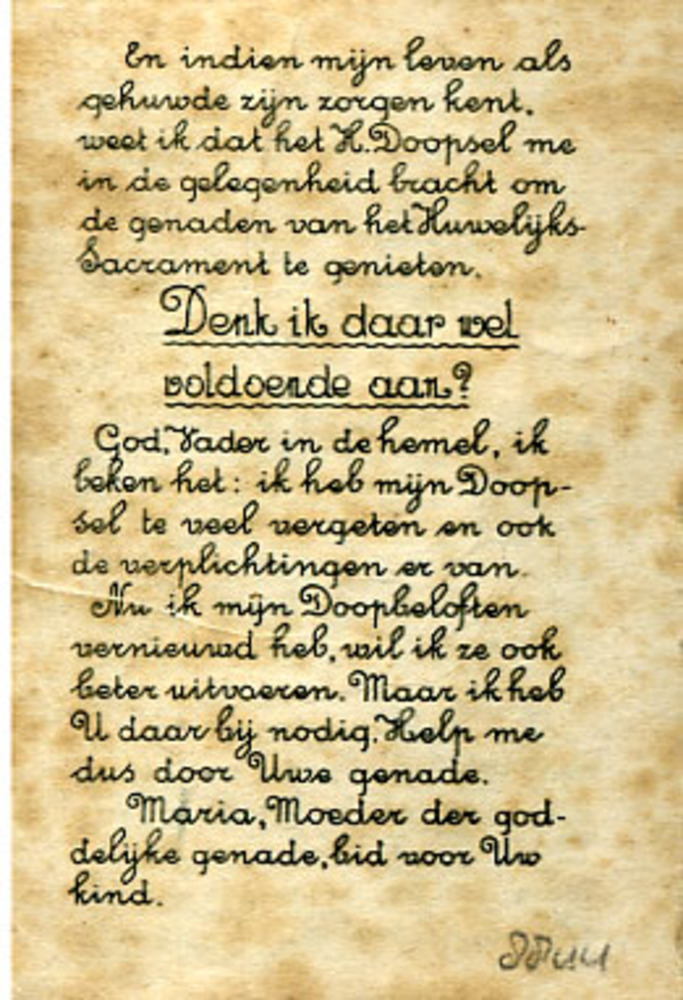 En indien mijn leven als
gehuwde zijn zorgen kent,
weet ik dat het H. Doopsel me
in de gelegenheid bracht om
de genaden van het Huwelijks-
Sacrament te genieten.
Denk ik daar wel
voldoende aan?
God, Vader in de hemel, ik
beken het: ik heb mijn Doop-
sel te veel vergeten en ook
de verplichtingen er van.
Nu ik mijn Doopbeloften
vernieuwd heb, wil ik ze ook
beter uitvoeren. Maar ik heb
U daar bij nodig. Help me
dus door Uwe genade.
Maria, Moeder der god-
delijke genade, bid voor Uw
kind.